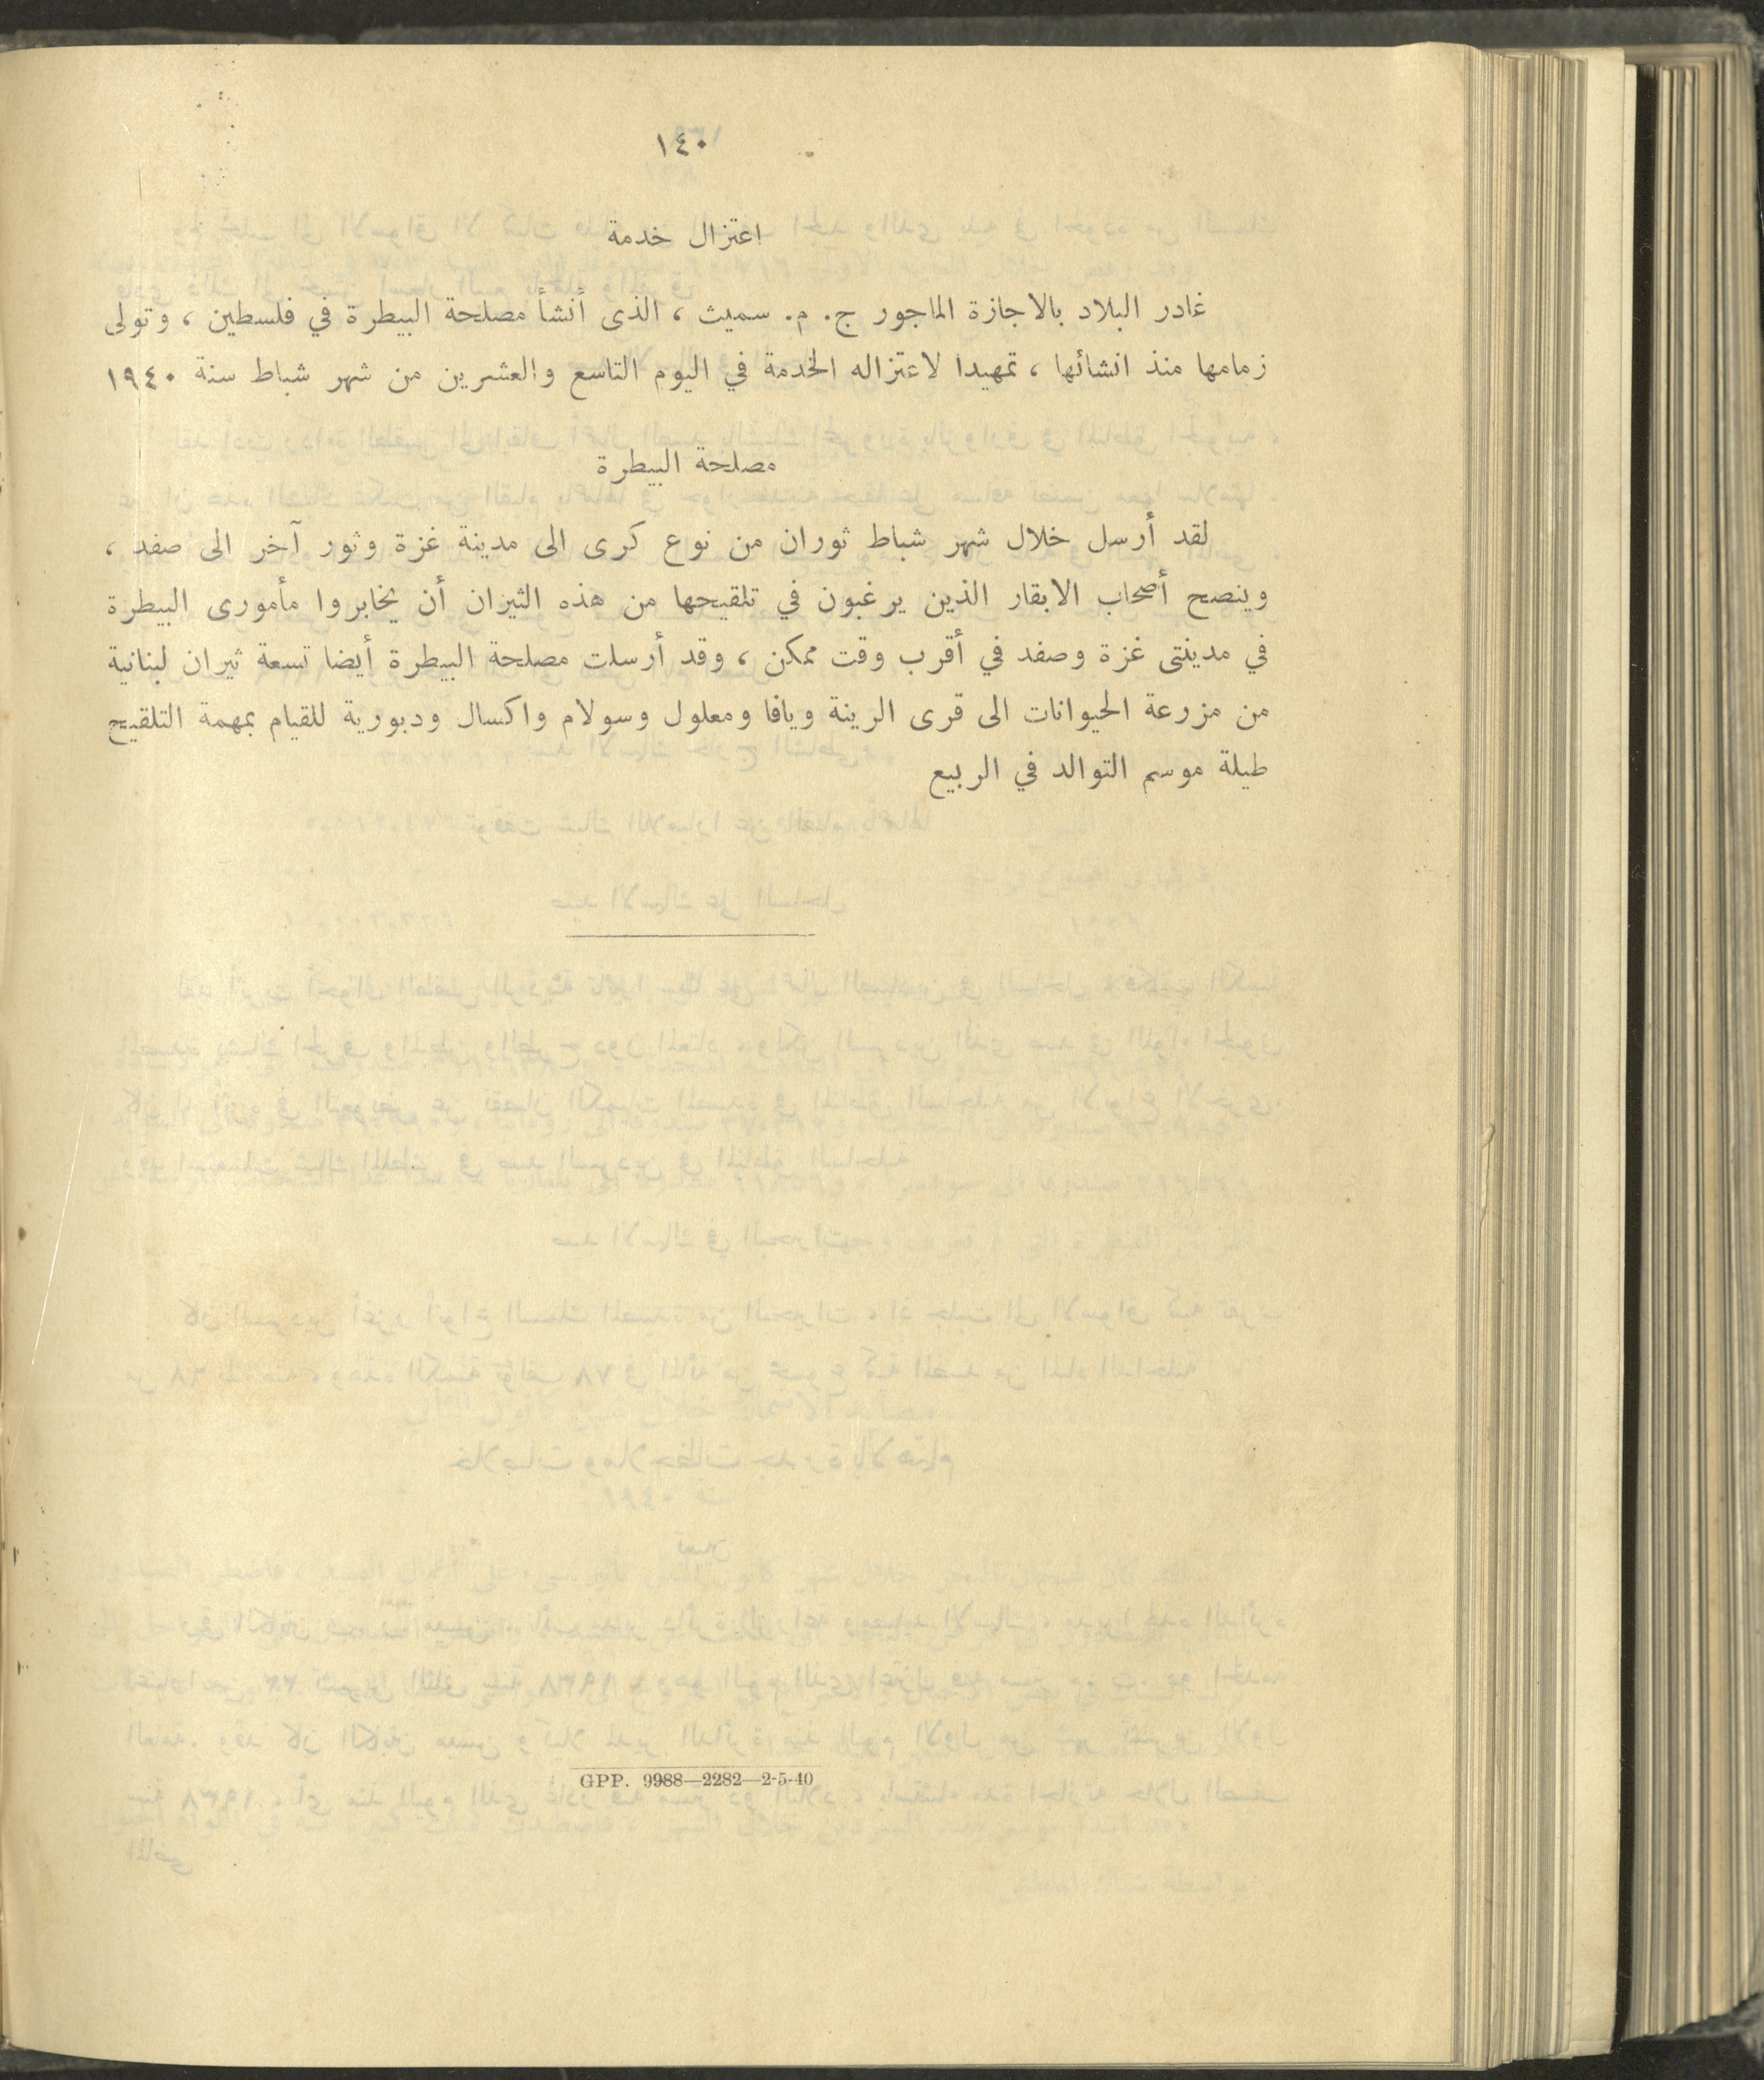 ١٤٠
اعتزال خدمة
غادر البلاد بالاجازة الماجور ج. م. سميث ، الذى أنشأ مصلحة البيطرة في فلسطين ، وتولى
زمامها منذ انشائها ، تمهيدا لاعتزاله الخدمة في اليوم التاسع والعشرين من شهر شباط سنة ١٩٤٠
مصلحة البيطرة
لقد أرسل خلال شهر شباط ثوران من نوع كرى الى مدينة غزة وثور آخر الى صفد ،
وينصح أصحاب الابقار الذين يرغبون في تلقيحها من هذه الثيران أن يخابروا مأمورى البيطرة
في مدينتى غزة وصفد في أقرب وقت ممكن ، وقد أرسلت مصلحة البيطرة أيضا تسعة ثيران لبنانية
من مزرعة الحيوانات الى قرى الرينة ويافا ومعلول وسولام واكسال ودبورية للقيام بمهمة التلقيح
طيلة موسم التوالد في الربيع
GPP. 9988—2282—2-5-40